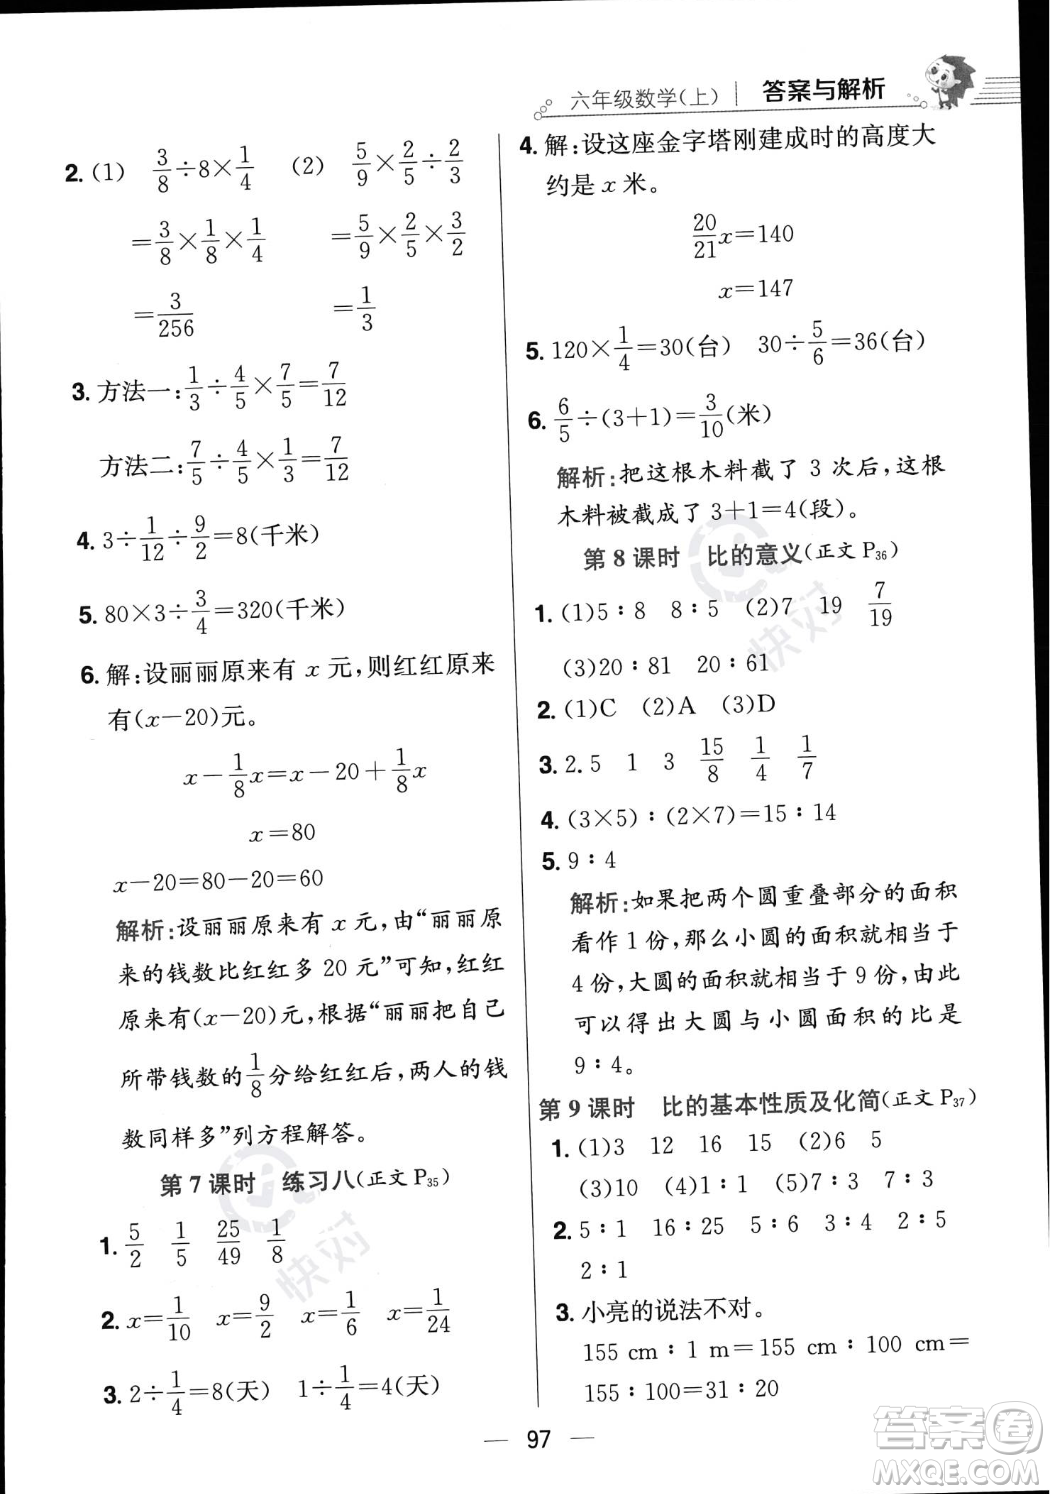 六年级数学(上) 答案与解析
2. (1) 3/8÷8×1/4 (2) 5/9×2/5÷2/3
=3/8×1/8×1/4 =5/9×2/5×3/2
=3/256 =1/3
3. 方法一:1/3÷4/5×7/5=7/12
方法二:7/5÷4/5×1/3=7/12
4. 3÷1/12÷9/2=8(千米)
5. 80×3÷3/4=320(千米)
6. 解:设丽丽原来有 x 元,则红红原来
有(x-20)元。
x-1/8x=x-20+1/8x
x=80
x-20=80-20=60
解析:设丽丽原来有 x 元,由“丽丽原
来的钱数比红红多 20 元”可知,红红
原来有(x-20)元,根据“丽丽把自己
所带钱数的1/8分给红红后,两人的钱
数同样多”列方程解答。
第 7 课时 练习八(正文 P35)
1. 5/2 1/5 25/49 1/8
2. x=1/10 x=9/2 x=1/6 x=1/24
3. 2÷1/4=8(天) 1÷1/4=4(天)
4. 解:设这座金字塔刚建成时的高度大
约是 x 米。
20/21x=140
x=147
5. 120×1/4=30(台) 30÷5/6=36(台)
6. 6/5÷(3+1)=3/10(米)
解析:把这根木料截了 3 次后,这根
木料被截成了 3+1=4(段)。
第 8 课时 比的意义(正文 P36)
1. (1)5∶8 8∶5 (2)7 19 7/19
(3)20∶81 20∶61
2. (1)C (2)A (3)D
3. 2.5 1 3 15/8 1/4 1/7
4. (3×5)∶(2×7)=15∶14
5. 9∶4
解析:如果把两个圆重叠部分的面积
看作 1 份,那么小圆的面积就相当于
4 份,大圆的面积就相当于 9 份,由此
可以得出大圆与小圆面积的比是
9∶4。
第 9 课时 比的基本性质及化简(正文 P37)
1. (1)3 12 16 15 (2)6 5
(3)10 (4)1∶1 (5)7∶3 7∶3
2. 5∶1 16∶25 5∶6 3∶4 2∶5
2∶1
3. 小亮的说法不对。
155 cm∶1 m=155 cm∶100 cm=
155∶100=31∶20
— 97 —
快对
快对
答案卷
MXQE.COM